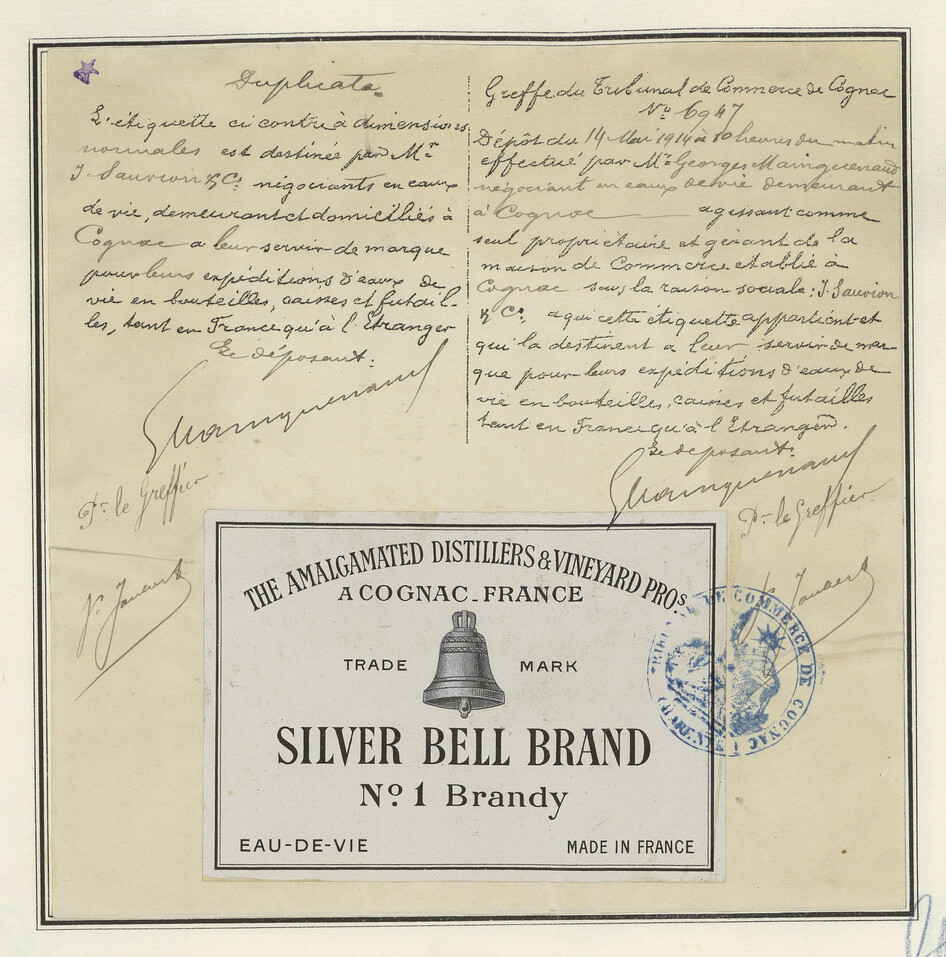 Duplicata
L'étiquette ci contre à dimensions
normales est destinée par Mr
J. Sauvion & Co négociants en eaux
de vie, demeurant et domiciliés à
Cognac a leur servir de marque
pour leurs expéditions d'eaux de
vie en bouteilles, caisses et futail-
les, tant en France qu'à l'Etranger
Le déposant:
GMainguenaud
Pr le Greffier
Greffe du Tribunal de Commerce de Cognac
No 6947
Dépôt du 14 Mai 1914 à 10 heures du matin
effectué par Mr Georges Mainguenaud
négociant en eaux de vie demeurant
à Cognac agissant comme
seul propriétaire et gérant de la
maison de Commerce etablie à
Cognac sous la raison sociale: J. Sauvion
& Co a qui cette étiquette appartient et
qui la destinent a leur servir de mar-
que pour leurs expéditions d'eaux de
vie en bouteilles, caisses et futailles
tant en France qu'à l'Etranger.
Le déposant:
GMainguenaud
Pr le Greffier
THE AMALGAMATED DISTILLERS & VINEYARD PROs
A COGNAC_FRANCE
TRADE MARK
SILVER BELL BRAND
No 1 Brandy
EAU-DE-VIE MADE IN FRANCE
DE COMMERCE DE COGNAC